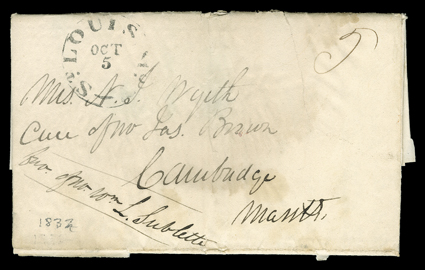 ST. LOUIS Mo.
OCT
5
5
Mrs. N. J. Wyeth
Care of Mr Jas. Brown
Cambridge
Masstts.
fav. of Mr Wm L. Sublette
1832